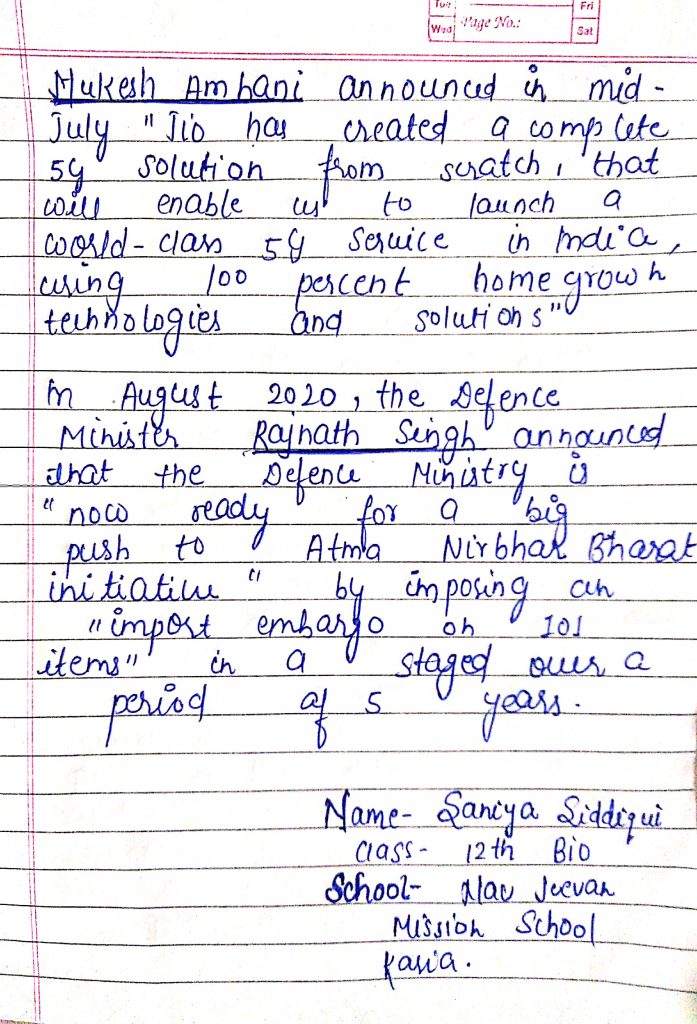 Tue
Fri
Wed Page No.: Sat
Mukesh Ambani announced in mid-
July "Jio has created a complete
5G solution from scratch, that
will enable us to launch a
world-class 5G service in India,
using 100 percent homegrown
technologies and solutions"
In August 2020, the Defence
Minister Rajnath Singh announced
that the Defence Ministry is
"now ready for a big
push to Atma Nirbhar Bharat
initiative" by imposing an
"import embargo on 101
items" in a staged over a
period of 5 years.
Name- Saniya Siddiqui
Class- 12th Bio
School- Nav Jeevan
Mission School
Kasia.